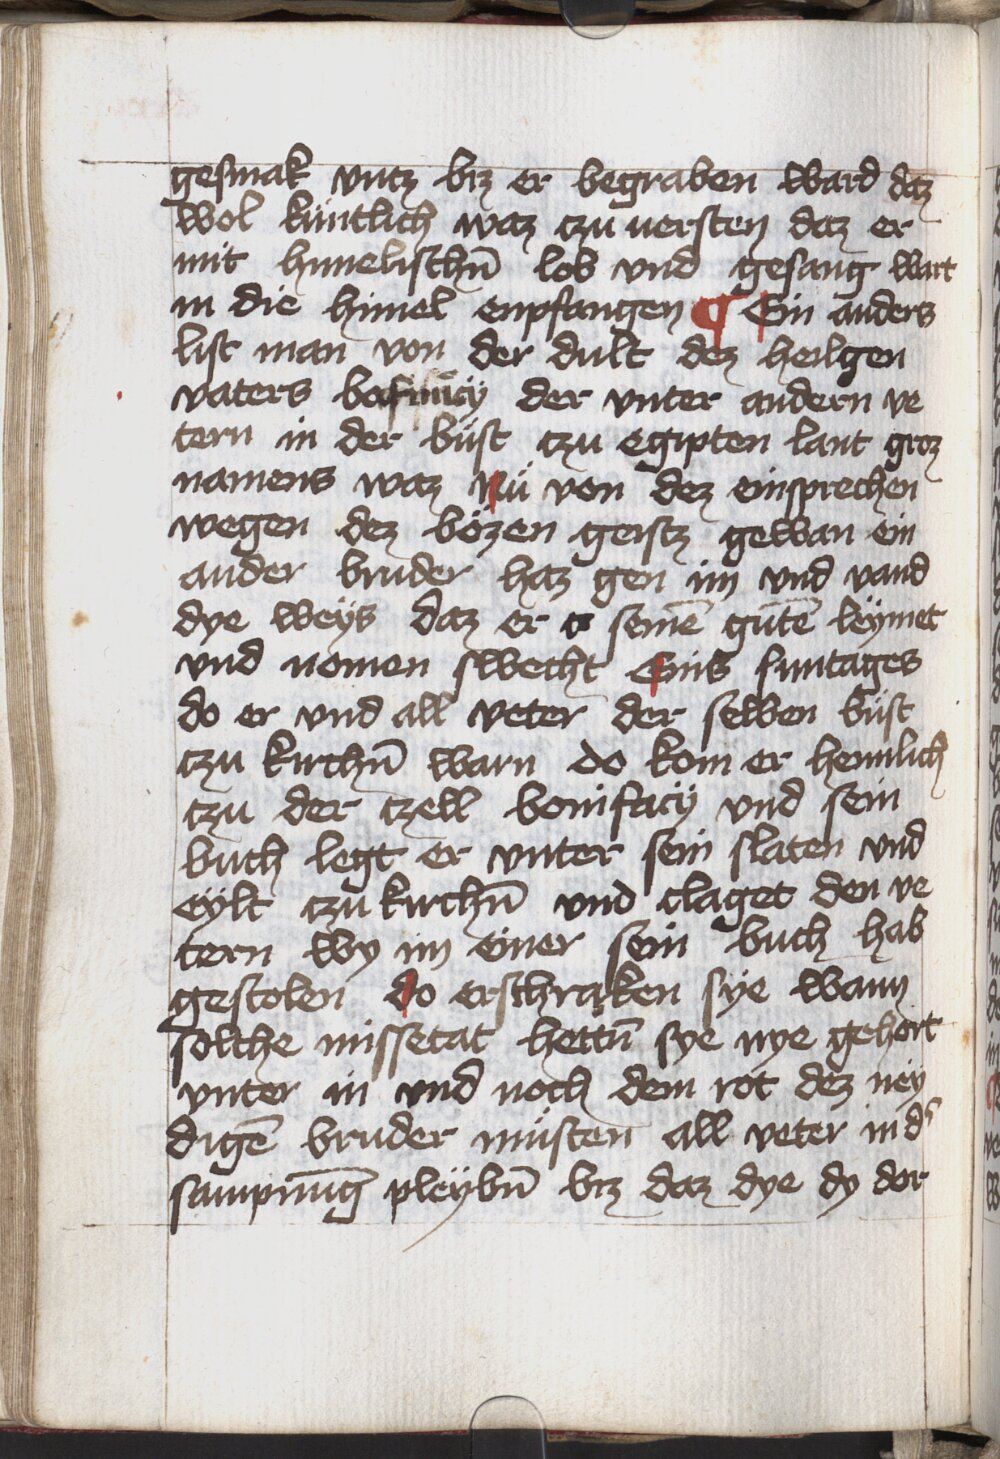 gesmak vntz biz er begraben ward daz
wol küntlich waz czu uersten daz er
mit himelischn̄ lob vnd gesang wart
in die himel enpfangen ¶ Ein anders
list man von der dult dez heilgen
vaters der vnter andern ve
tern in der büst czu egipten lant groz
namens waz Nü von dez einsprechen
wegen dez bözen geistz gewan ein
ander bruder haz gen im vnd vand
dye weÿs daz er seinē gutē leÿmet
vnd nomen swecht Eins suntages
do er vnd all veter der selben büst
czu kirchn̄ warn do kom er heimlich
czu der czell bonifacÿ vnd sein
buch legt er vnter sein slaten vnd
eÿlt czu kirchn̄ vnd claget den ve
tern wy im einer sein buch hab
gestolen do erschraken sÿe wann
solche missetat hettn̄ sye nye gehort
vnter in vnd noch dem rot dez neÿ
digē bruder müsten all veter in d'
sampnūg pleÿbn̄ biz daz dye dy dor